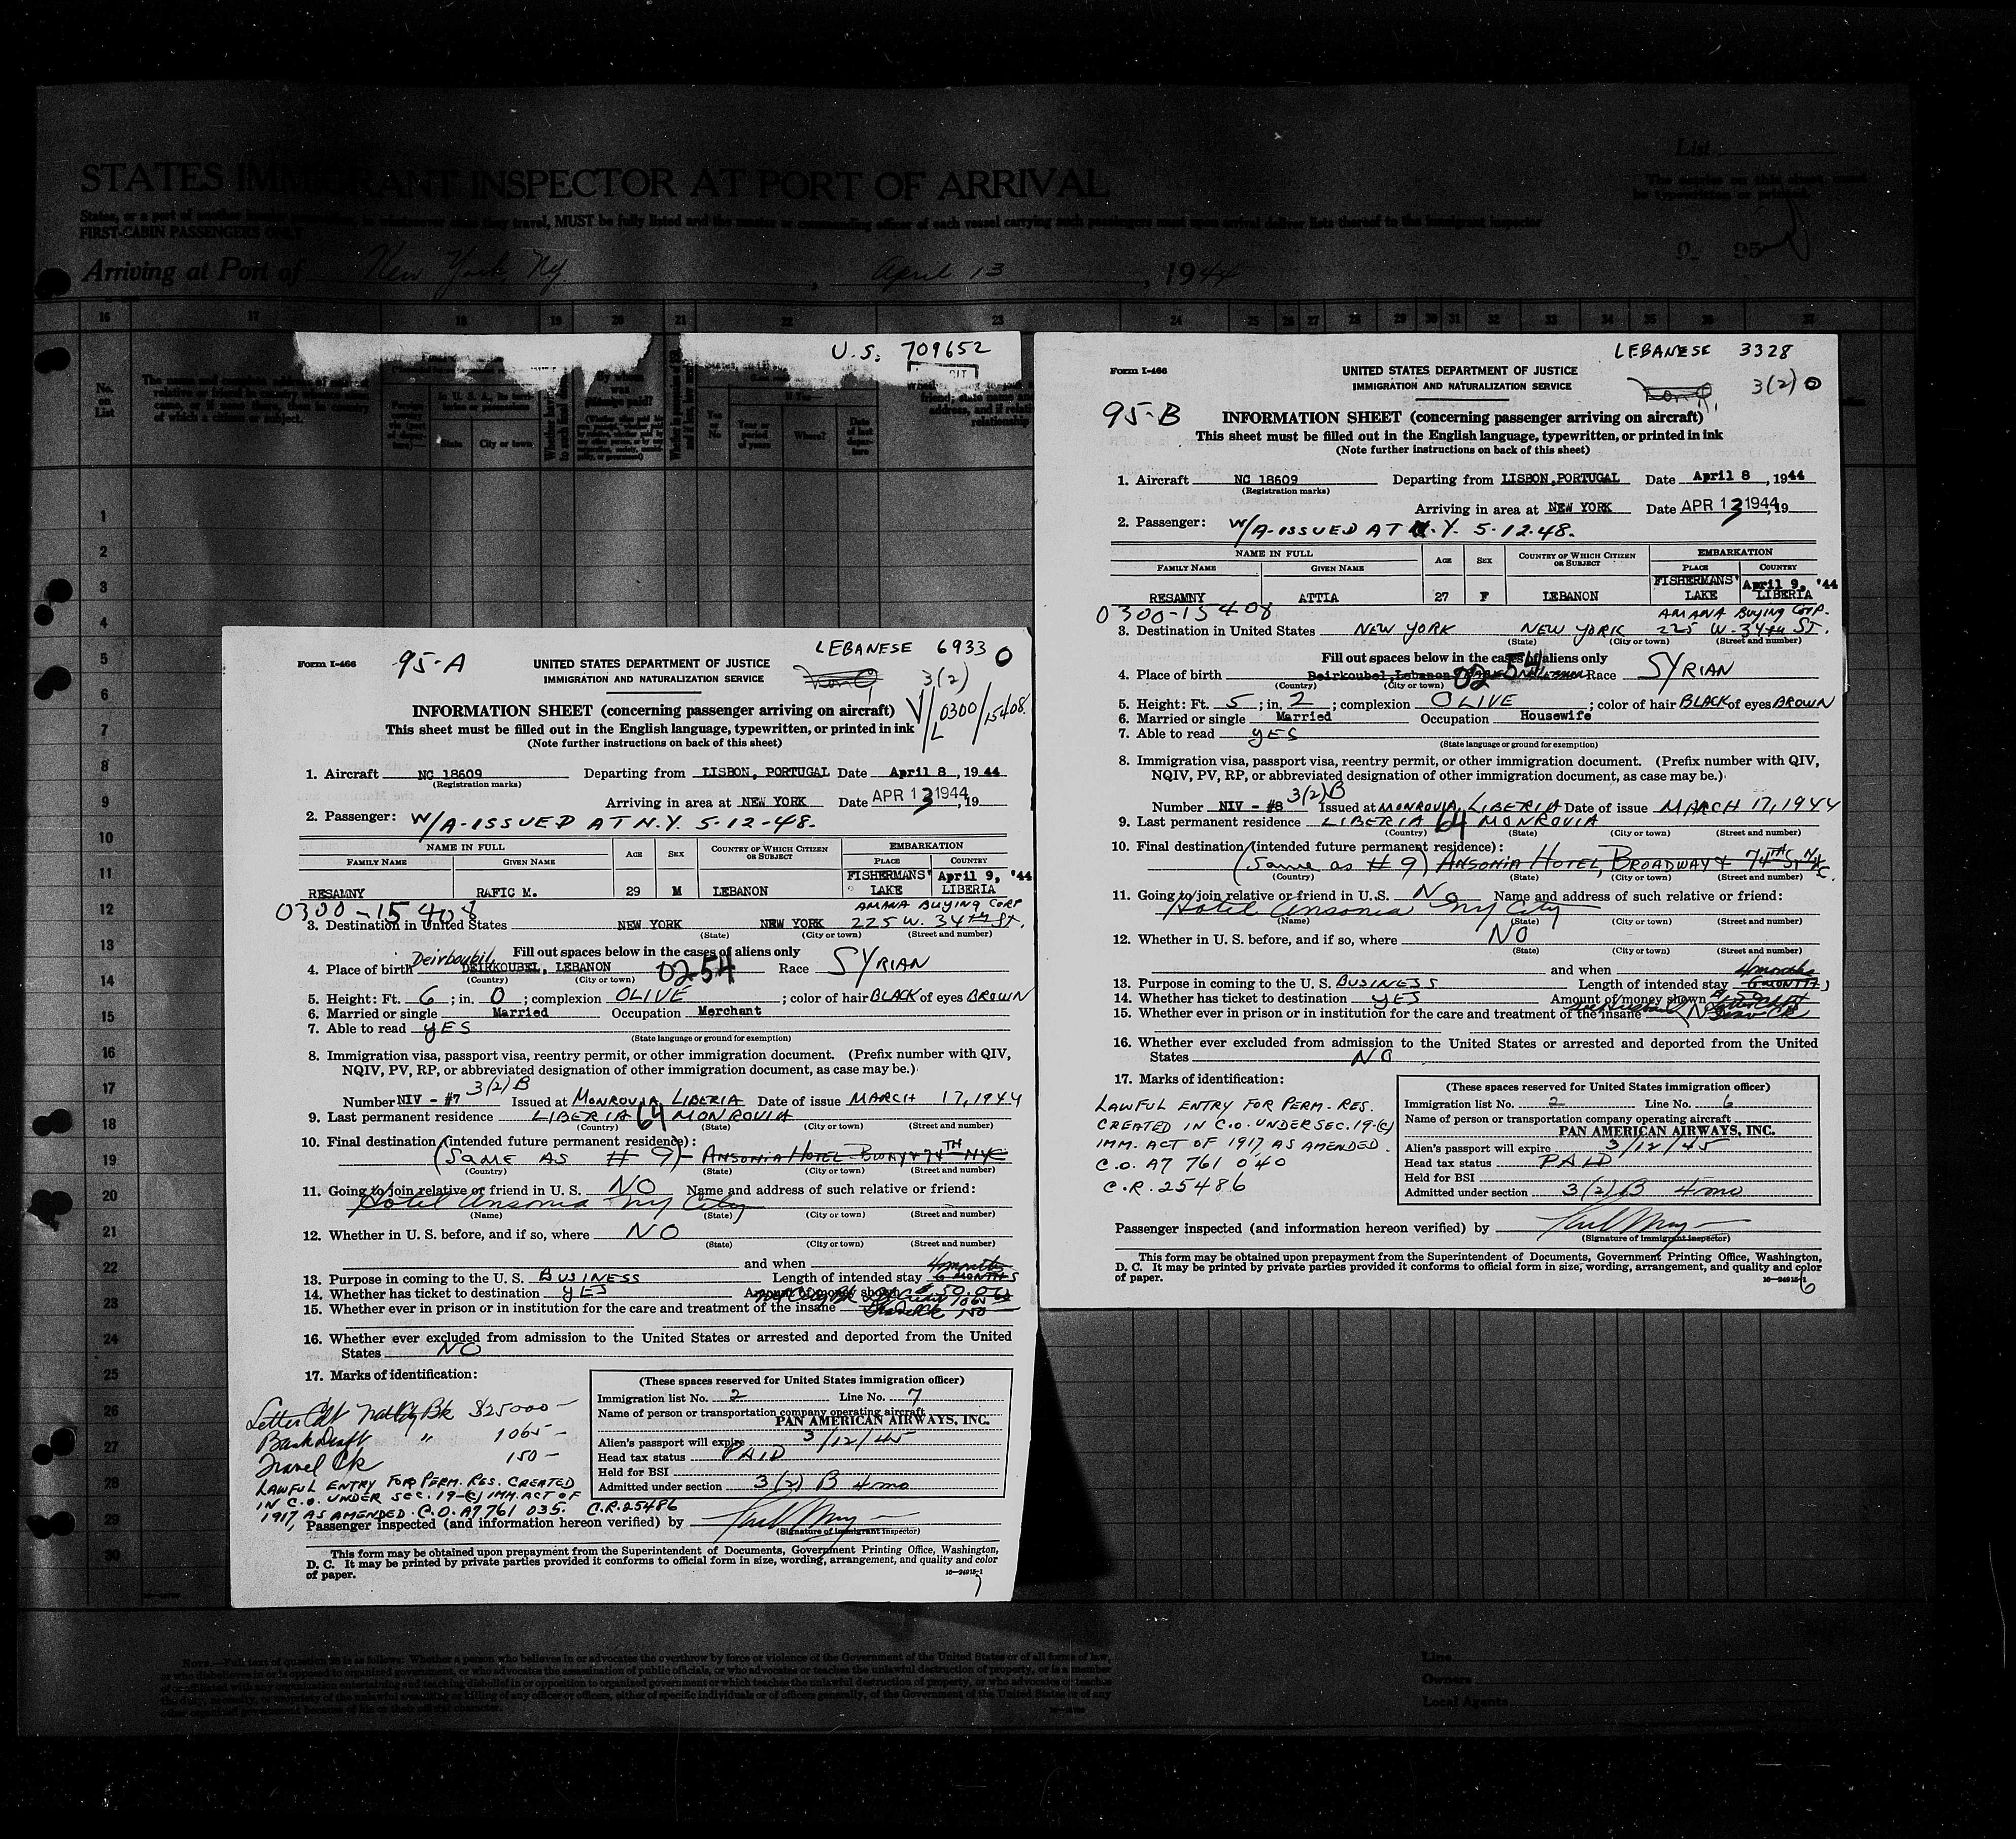 STATES IMMIGRANT INSPECTOR AT PORT OF ARRIVAL
FIRST-CABIN PASSENGERS ONLY
Arriving at Port of New York, NY, April 13, 1944
List
16 17 18 19 20 21 22 23 24 25 26 27 28 29 30 31 32 33 34 35 36 37
No. on List
U.S. 709652
1
2
3
4
5
6
7
8
9
10
11
12
13
14
15
16
17
18
19
20
21
22
23
24
25
26
27
28
29
30
LEBANESE 6933
Form I-466
95-A
UNITED STATES DEPARTMENT OF JUSTICE
IMMIGRATION AND NATURALIZATION SERVICE
3(2)
V/L 0300/15408
INFORMATION SHEET (concerning passenger arriving on aircraft)
This sheet must be filled out in the English language, typewritten, or printed in ink
(Note further instructions on back of this sheet)
1. Aircraft NC 18609 Departing from LISBON, PORTUGAL Date April 8, 1944
(Registration marks)
Arriving in area at NEW YORK Date APR 13 1944, 19
2. Passenger: W/A-ISSUED AT N.Y. 5-12-48.
NAME IN FULL AGE SEX COUNTRY OF WHICH CITIZEN OR SUBJECT EMBARKATION
FAMILY NAME GIVEN NAME PLACE COUNTRY
FISHERMANS' April 9, '44
RESAMNY RAFIC M. 29 M LEBANON LAKE LIBERIA
0300-15408 AMANA BUYING CORP
3. Destination in United States NEW YORK NEW YORK 225 W. 34th St.
(State) (City or town) (Street and number)
Fill out spaces below in the cases of aliens only
Deirkoubil
4. Place of birth DEIRKOUBEL, LEBANON 0254 Race SYRIAN
(Country) (City or town)
5. Height: Ft. 6; in. 0; complexion OLIVE; color of hair BLACK of eyes BROWN
6. Married or single Married Occupation Merchant
7. Able to read YES
(State language or ground for exemption)
8. Immigration visa, passport visa, reentry permit, or other immigration document. (Prefix number with QIV,
NQIV, PV, RP, or abbreviated designation of other immigration document, as case may be.)
3(2)B
Number NIV - #7 Issued at MONROVIA LIBERIA Date of issue MARCH 17, 1944
9. Last permanent residence LIBERIA 64 MONROVIA
(Country) (State) (City or town) (Street and number)
10. Final destination (intended future permanent residence):
(SAME AS #9) ANSONIA HOTEL BWAY & 74TH NYC
(Country) (State) (City or town) (Street and number)
11. Going to join relative or friend in U.S. NO Name and address of such relative or friend:
Hotel Ansonia NY City
(Name) (State) (City or town) (Street and number)
12. Whether in U.S. before, and if so, where NO
(State) (City or town) (Street and number)
and when
4 months
13. Purpose in coming to the U.S. BUSINESS Length of intended stay 6 MONTHS
14. Whether has ticket to destination YES Amount of money shown
15. Whether ever in prison or in institution for the care and treatment of the insane
16. Whether ever excluded from admission to the United States or arrested and deported from the United
States NO
17. Marks of identification:
Letter Cdt Natl City Bk $25000-
Bank Draft " 1065-
Travel Ck 150-
LAWFUL ENTRY FOR PERM. RES. CREATED
IN C.O. UNDER SEC. 19-(C) IMM. ACT OF
1917 AS AMENDED. C.O. A7 761 035. C.R. 25486
(These spaces reserved for United States immigration officer)
Immigration list No. 2 Line No. 7
Name of person or transportation company operating aircraft
PAN AMERICAN AIRWAYS, INC.
Alien's passport will expire 3/12/45
Head tax status PAID
Held for BSI
Admitted under section 3(2) B 4 mo
Passenger inspected (and information hereon verified) by
(Signature of immigrant inspector)
This form may be obtained upon prepayment from the Superintendent of Documents, Government Printing Office, Washington,
D. C. It may be printed by private parties provided it conforms to official form in size, wording, arrangement, and quality and color
of paper.
16-24915-1
7
LEBANESE 3328
Form I-466
UNITED STATES DEPARTMENT OF JUSTICE
IMMIGRATION AND NATURALIZATION SERVICE
3(2)
95-B
INFORMATION SHEET (concerning passenger arriving on aircraft)
This sheet must be filled out in the English language, typewritten, or printed in ink
(Note further instructions on back of this sheet)
1. Aircraft NC 18609 Departing from LISBON, PORTUGAL Date April 8, 1944
(Registration marks)
Arriving in area at NEW YORK Date APR 13 1944, 19
2. Passenger: W/A-ISSUED AT N.Y. 5-12-48.
NAME IN FULL AGE SEX COUNTRY OF WHICH CITIZEN OR SUBJECT EMBARKATION
FAMILY NAME GIVEN NAME PLACE COUNTRY
FISHERMANS' April 9, '44
RESAMNY ATTIA 27 F LEBANON LAKE LIBERIA
0300-15408 AMANA BUYING CORP.
3. Destination in United States NEW YORK NEW YORK 225 W. 34th ST.
(State) (City or town) (Street and number)
Fill out spaces below in the cases of aliens only
4. Place of birth Deirkoubel, Lebanon 0254 Race SYRIAN
(Country) (City or town)
5. Height: Ft. 5; in. 2; complexion OLIVE; color of hair BLACK of eyes BROWN
6. Married or single Married Occupation Housewife
7. Able to read YES
(State language or ground for exemption)
8. Immigration visa, passport visa, reentry permit, or other immigration document. (Prefix number with QIV,
NQIV, PV, RP, or abbreviated designation of other immigration document, as case may be.)
3(2)B
Number NIV - #8 Issued at MONROVIA, LIBERIA Date of issue MARCH 17, 1944
9. Last permanent residence LIBERIA 64 MONROVIA
(Country) (State) (City or town) (Street and number)
10. Final destination (intended future permanent residence):
(Same as #9) ANSONIA HOTEL, BROADWAY & 74TH St NYC
(Country) (State) (City or town) (Street and number)
11. Going to join relative or friend in U.S. NO Name and address of such relative or friend:
Hotel Ansonia NY City
(Name) (State) (City or town) (Street and number)
12. Whether in U.S. before, and if so, where NO
(State) (City or town) (Street and number)
and when
4 months
13. Purpose in coming to the U.S. BUSINESS Length of intended stay 6 MONTHS
14. Whether has ticket to destination YES Amount of money shown
15. Whether ever in prison or in institution for the care and treatment of the insane
16. Whether ever excluded from admission to the United States or arrested and deported from the United
States NO
17. Marks of identification:
LAWFUL ENTRY FOR PERM. RES.
CREATED IN C.O. UNDER SEC. 19-(C)
IMM. ACT OF 1917, AS AMENDED.
C.O. A7 761 040
C.R. 25486
(These spaces reserved for United States immigration officer)
Immigration list No. 2 Line No. 6
Name of person or transportation company operating aircraft
PAN AMERICAN AIRWAYS, INC.
Alien's passport will expire 3/12/45
Head tax status PAID
Held for BSI
Admitted under section 3(2)B 4 mo
Passenger inspected (and information hereon verified) by
(Signature of immigrant inspector)
This form may be obtained upon prepayment from the Superintendent of Documents, Government Printing Office, Washington,
D. C. It may be printed by private parties provided it conforms to official form in size, wording, arrangement, and quality and color
of paper.
16-24915-1
6
Line
Owners
Local Agents